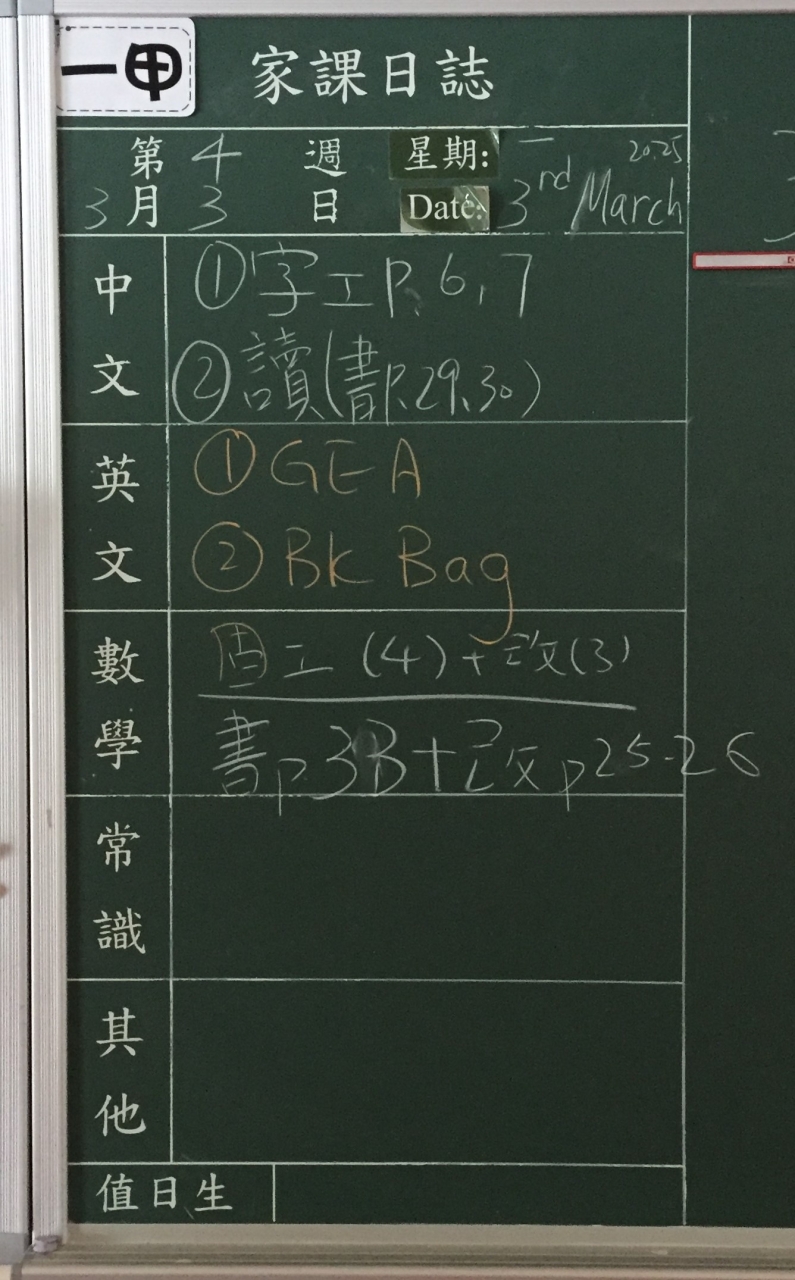 一甲
家課日誌
第 4 週 星期: 一 2025
3月 3 日 Date: 3rd March
中文
①字工P.6,7
②讀(書P.29,30)
英文
①GEA
②Bk Bag
數學
工 (4)+改(3)
書p3B+改p25-26
常識
其他
值日生